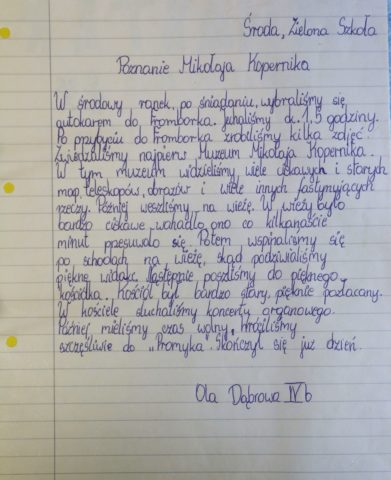 Środa, Zielona Szkoła
Poznanie Mikołaja Kopernika
W środowy ranek, po śniadaniu, wybraliśmy się
autokarem do Fromborka. Jechaliśmy ok. 1,5 godziny.
Po przybyciu do Fromborka zrobiliśmy kilka zdjęć.
Zwiedzaliśmy najpierw Muzeum Mikołaja Kopernika.
W tym muzeum widzieliśmy wiele ciekawych i starych
map, teleskopów, obrazów i wiele innych fascynujących
rzeczy. Później weszliśmy na wieżę. W wieży było
bardzo ciekawe wahadło, ono co kilkanaście
minut przesuwało się. Potem wspinaliśmy się
po schodach na wieżę, skąd podziwialiśmy
piękne widoki. Następnie poszliśmy do pięknego
kościółka. Kościół był bardzo stary, pięknie pozłacany.
W kościele słuchaliśmy koncertu organowego.
Później mieliśmy czas wolny. Wróciliśmy
szczęśliwie do „Promyka". Skończył się już dzień.
Ola Dąbrowa IV b